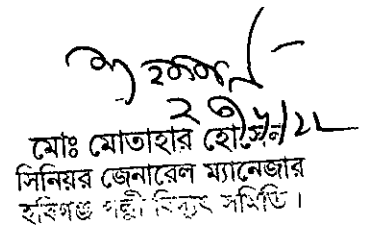 মোঃ মোতাহার হোসেন
সিনিয়র জেনারেল ম্যানেজার
হবিগঞ্জ পল্লী বিদ্যুৎ সমিতি।